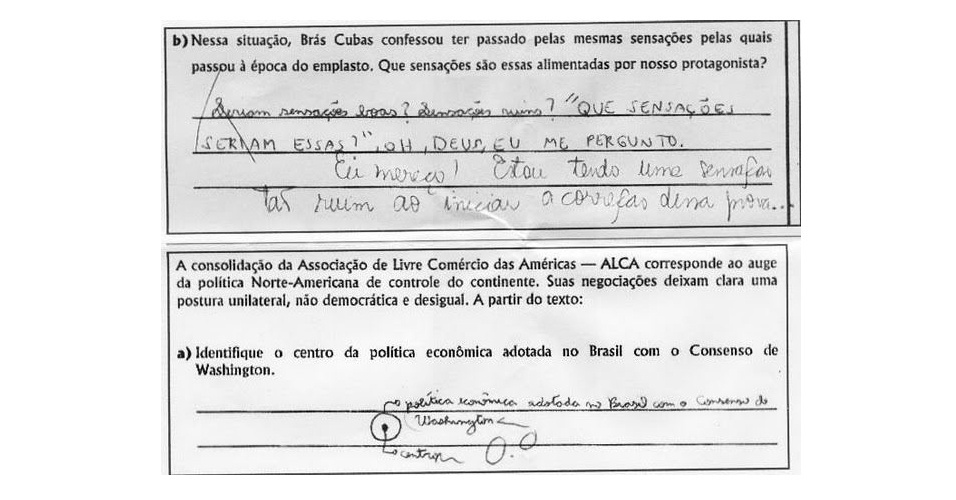 b) Nessa situação, Brás Cubas confessou ter passado pelas mesmas sensações pelas quais
passou à época do emplasto. Que sensações são essas alimentadas por nosso protagonista?
Seriam sensações boas? Sensações ruins? "QUE SENSAÇÕES
SERIAM ESSAS?", OH, DEUS, EU ME PERGUNTO.
Eu mereço! Estou tendo uma sensação
tão ruim ao iniciar a correção dessa prova...
A consolidação da Associação de Livre Comércio das Américas — ALCA corresponde ao auge
da política Norte-Americana de controle do continente. Suas negociações deixam clara uma
postura unilateral, não democrática e desigual. A partir do texto:
a) Identifique o centro da política econômica adotada no Brasil com o Consenso de
Washington.
política econômica adotada no Brasil com o Consenso de
Washington
centro